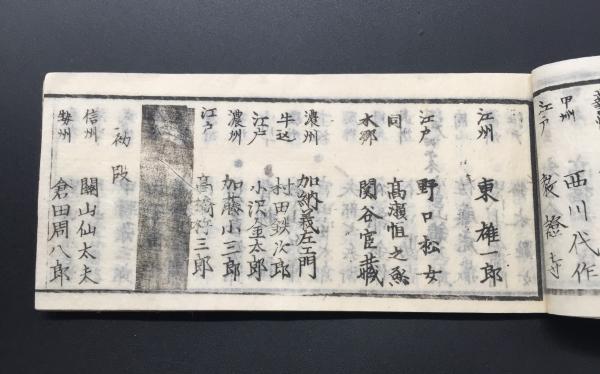 華
甲州 西川代作
江戸 寺
江州 東雄一郎
江戸 野口松女
同 高瀬恒之
水郷 関谷宦蔵
濃州 加納義左門
牛込 村田鉄次郎
江戸 小沢金太郎
濃州 加藤小三郎
江戸 高 三郎
初段
信州 関山仙太夫
勢州 倉田周八郎